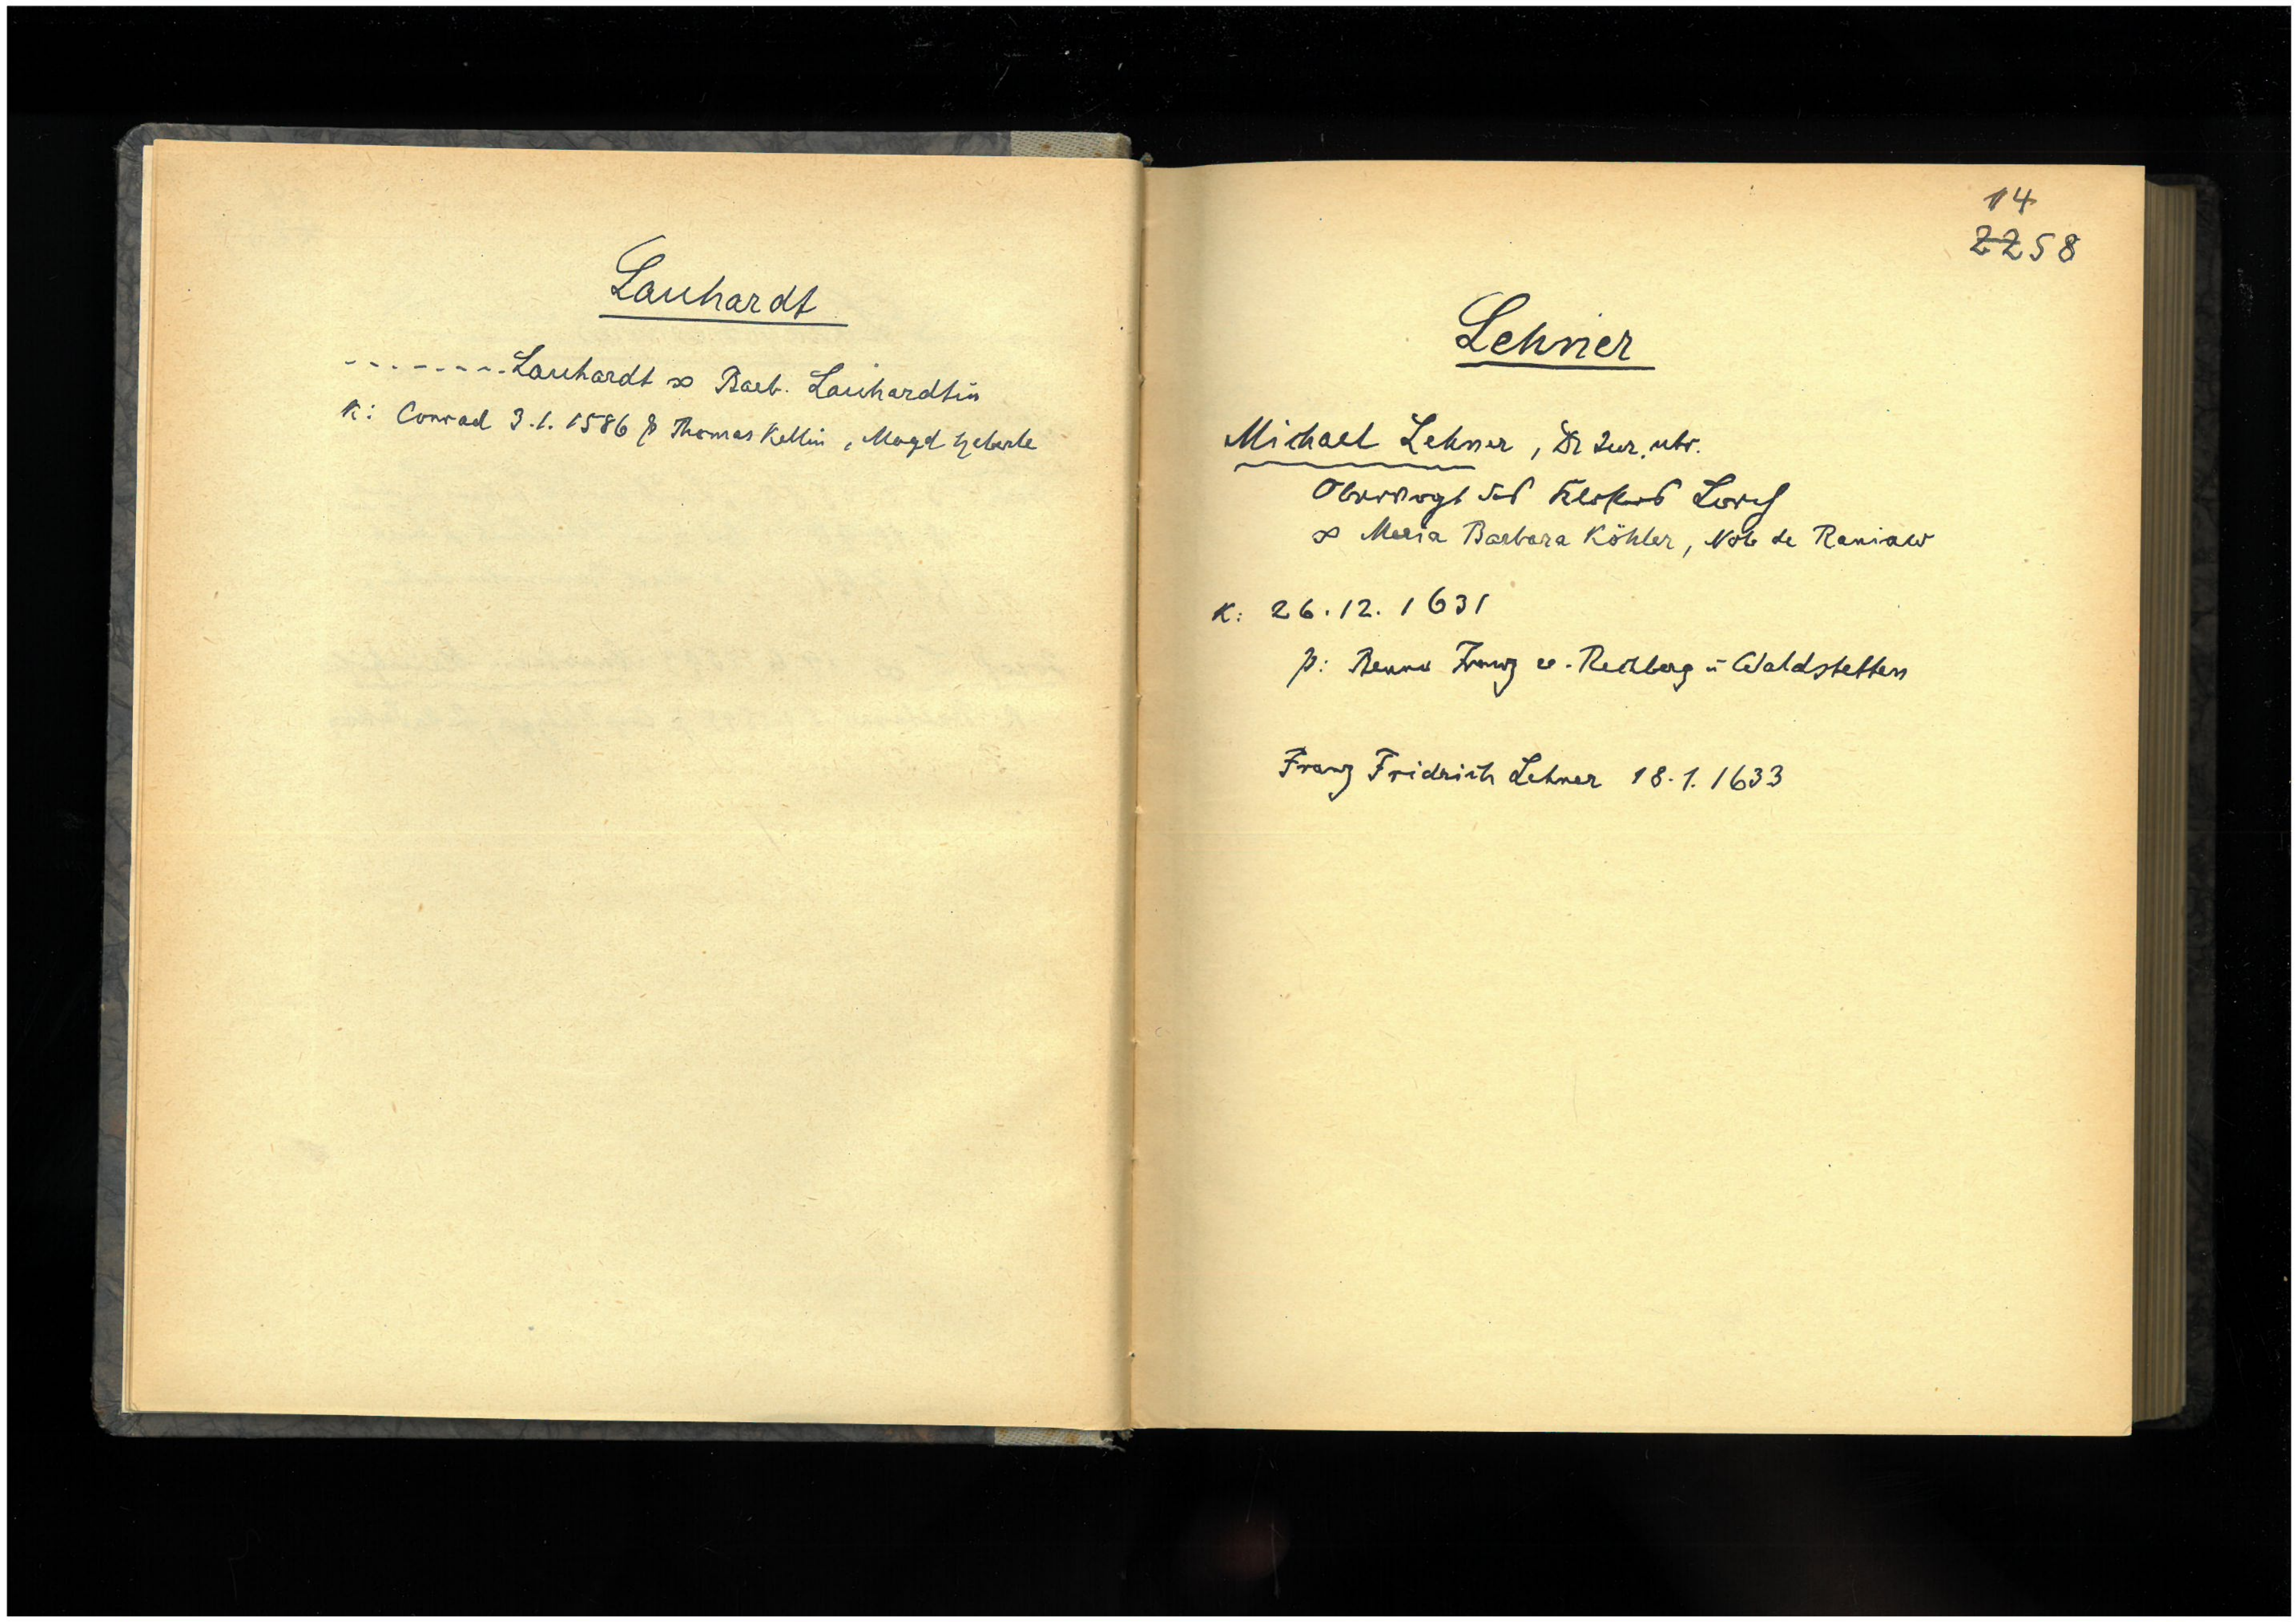 Lauhardt
- - - - - - - Lauhardt ∞ Barb. Lauhardtin
K: Conrad 3.1. 1586 p Thomas Kellin, Magd Heberle
14
2258
Lehner
Michael Lehner, Dr Jur. utr.
Obervogt des Klosters Lorch
∞ Maria Barbara Köhler, Nob de Raniaw
K: 26.12. 1631
p: Benno Franz v. Rechberg u Waldstetten
Franz Fridrich Lehner 18.1. 1633